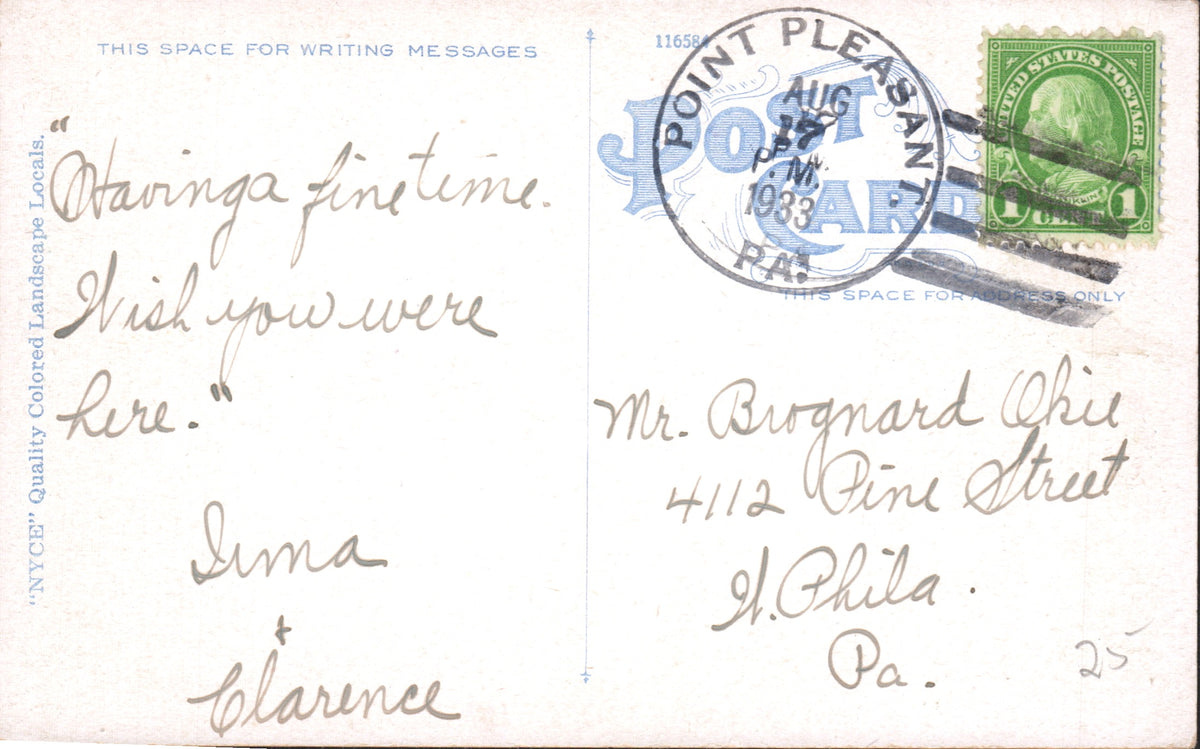 THIS SPACE FOR WRITING MESSAGES
"Having a fine time.
Wish you were
here."
Irma
+
Clarence
"NYCE" Quality Colored Landscape Locals.
116584
POST CARD
POINT PLEASANT.
AUG
17
P.M.
1933
PA.
UNITED STATES POSTAGE
FRANKLIN
1 CENT 1
THIS SPACE FOR ADDRESS ONLY
Mr. Brognard Okie
4112 Pine Street
W. Phila.
Pa.
25